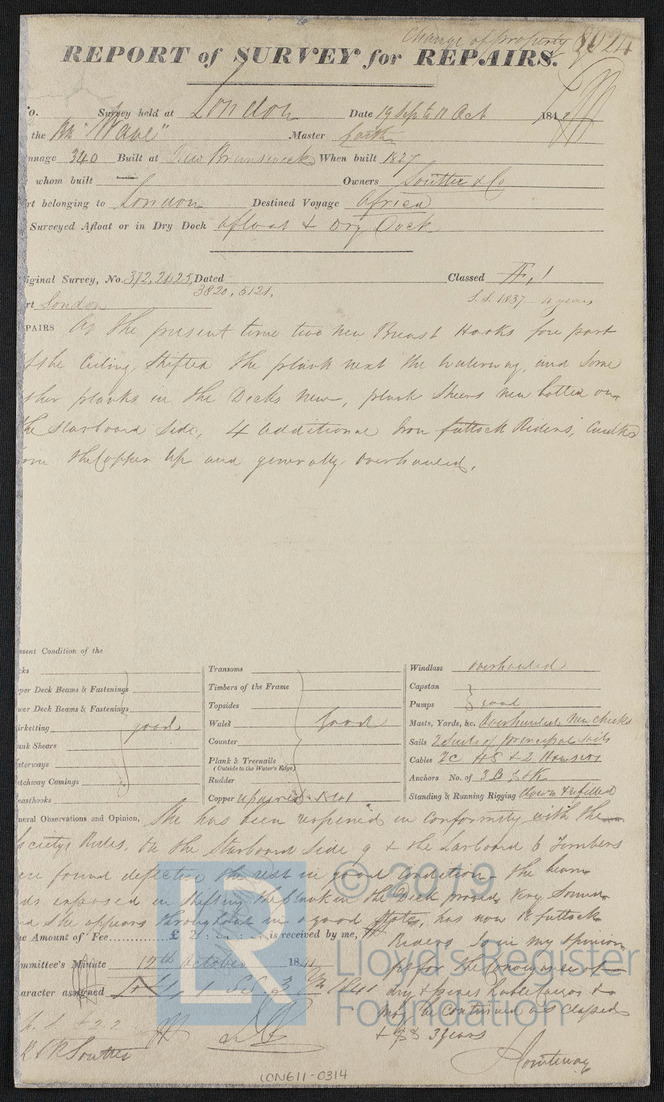 Change of property
REPORT of SURVEY for REPAIRS.
Survey held at London Date 19 Sept to 11 Oct 184
the "Wave" Master
340 Built at New Brunswick When built 1827
whom built — Owners Souttes & Co
belonging to London Destined Voyage Africa
Surveyed Afloat or in Dry Dock afloat & Dry Dock
iginal Survey, No. 372, 2425, Dated Classed Æ, 1
3820, 5121,
London
S.S. 1837
PAIRS At the present time two new Breast Hooks fore part
of the Ceiling Shifted the plank next the waterway, and some
other planks in the Decks new, plank Sheers new bolted on
the Starboard Side, 4 additional Iron futtock Riders,
the Copper up and generally overhauled.
sent Condition of the
Transoms
Windlass overhauled
per Deck Beams & Fastenings
Timbers of the Frame
Capstan
wer Deck Beams & Fastenings
Topsides
Pumps good
irketting good
Wales good
Masts, Yards, &c. Overhauled
ank Shears
Counter
Sails 2 Suits of principal sails
aterways
Plank & Treenails
(Outside to the Water's Edge)
Cables
atchway Comings
Rudder
Anchors No. of 3 B
easthooks
Copper repaired
Standing & Running Rigging
neral Observations and Opinion, She has been reopened in conformity with the
Societys Rules. On the Starboard Side 9 & the Larboard 6 Timbers
were found defective the rest in good condition. the beam
ends exposed in shifting the plank in the Deck proved very Sound
and she appears throughout in a good State, has now 12 futtock
e Amount of Fee £ 2 : is received by me,
Riders
in my opinion
mmittee's Minute 12th October 1841
fit for the Conveyance of
aracter assigned
dry & perishable Cargoes &
may be continued as classed
3 years
Souttes
LON611-0314
© 2019
Lloyd's Register
Foundation
LR